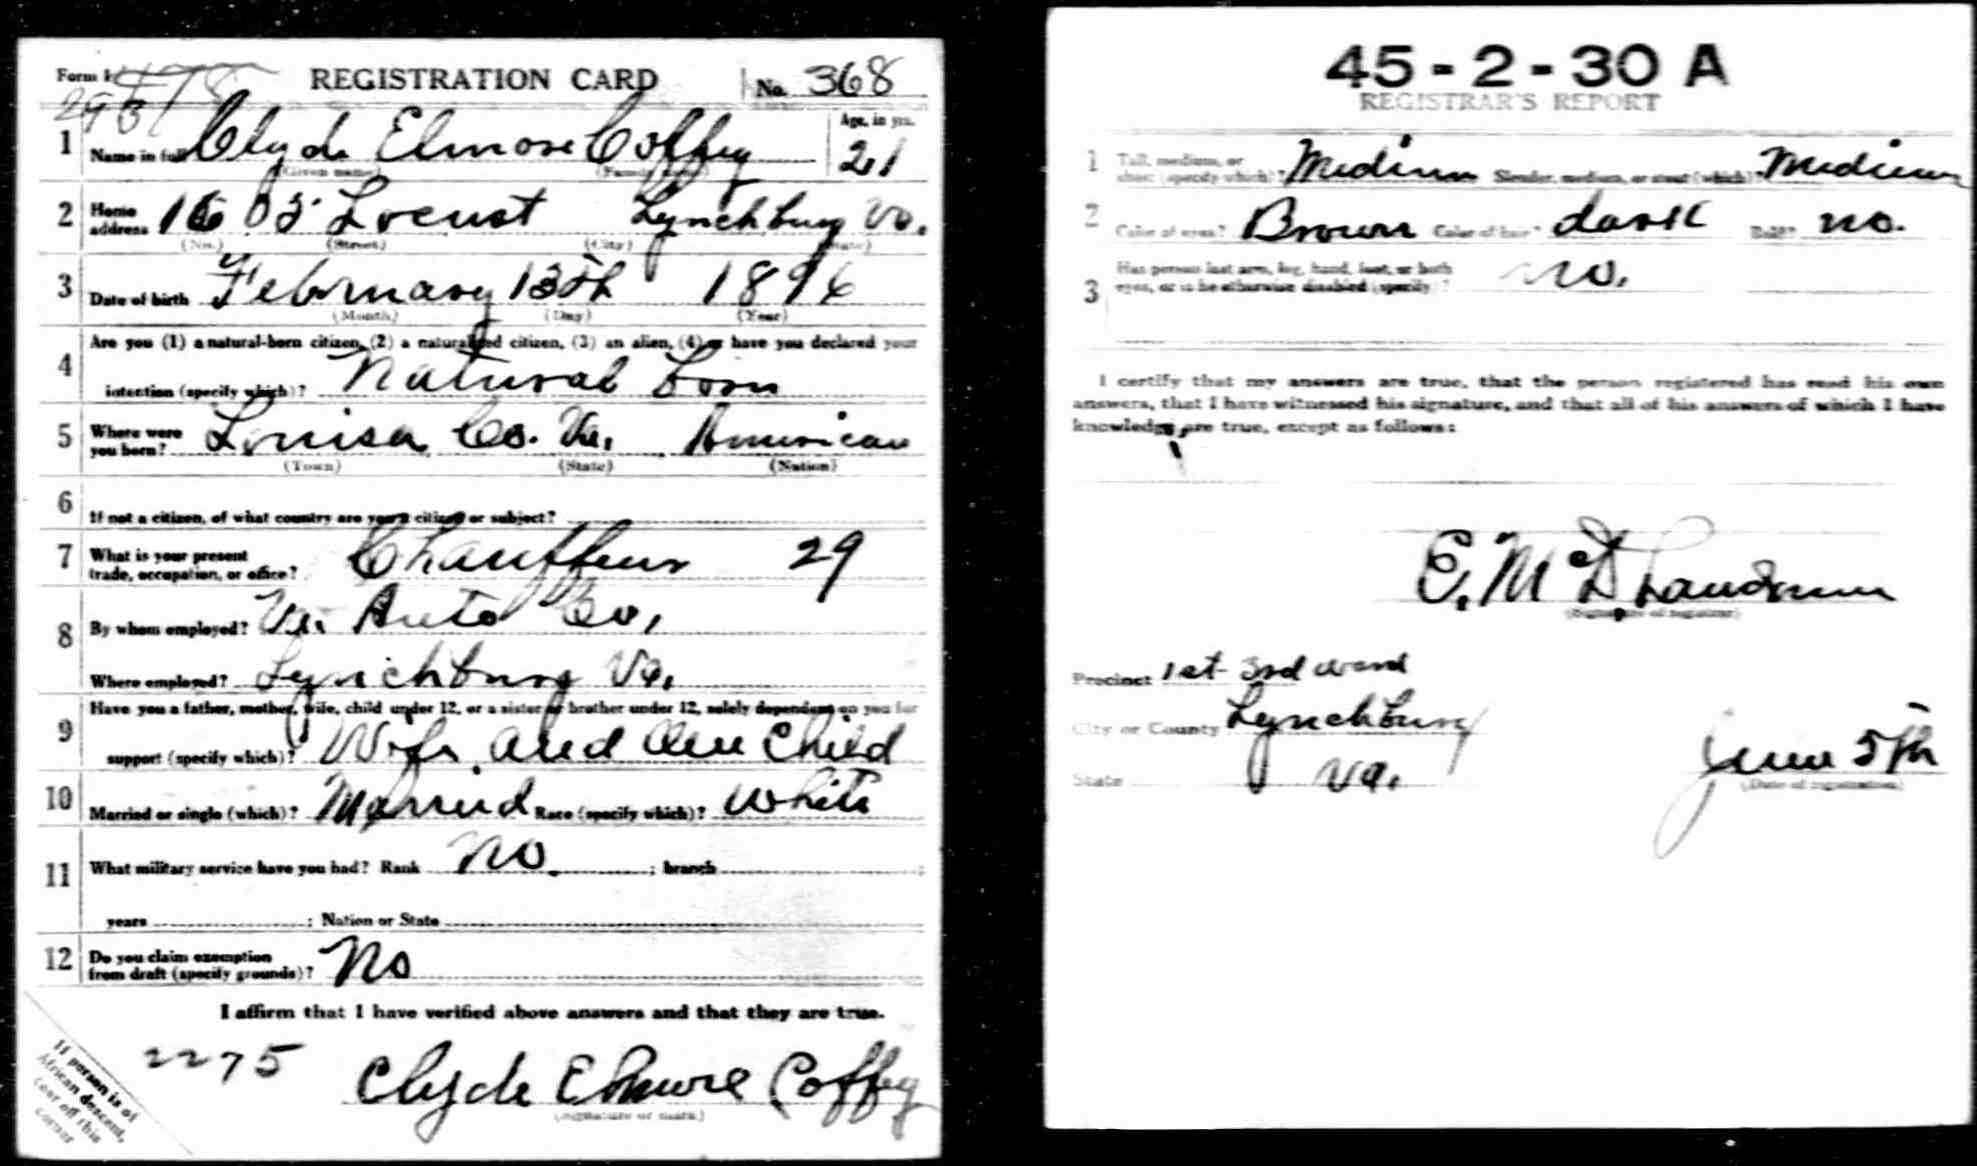 Form 1 REGISTRATION CARD No. 368
1 Name in full Clyde Elmore Coffey Age, in yrs. 21
(Given name) (Family name)
2 Home address 1605 Locust Lynchburg Va.
(No.) (Street) (City) (State)
3 Date of birth February 13th 1896
(Month) (Day) (Year)
4 Are you (1) a natural-born citizen, (2) a naturalized citizen, (3) an alien, (4) or have you declared your
intention (specify which)? Natural born
5 Where were you born? Louisa Co. Va. American
(Town) (State) (Nation)
6 If not a citizen, of what country are you a citizen or subject?
7 What is your present trade, occupation, or office? Chauffeur 29
8 By whom employed? Va. Auto Co.
Where employed? Lynchburg Va.
9 Have you a father, mother, wife, child under 12, or a sister or brother under 12, solely dependent on you for
support (specify which)? Wife and One Child
10 Married or single (which)? Married Race (specify which)? White
11 What military service have you had? Rank No ; branch ;
years ; Nation or State
12 Do you claim exemption from draft (specify grounds)? No
I affirm that I have verified above answers and that they are true.
2275 Clyde Elmore Coffey
(Signature or mark)
If person is of
African descent,
tear off this
corner
45-2-30 A
REGISTRAR'S REPORT
1 Tall, medium, or short (specify which)? Medium Slender, medium, or stout (which)? Medium
2 Color of eyes? Brown Color of hair? dark Bald? no.
3 Has person lost arm, leg, hand, foot, or both eyes, or is he otherwise disabled (specify)? no.
I certify that my answers are true, that the person registered has read his own
answers, that I have witnessed his signature, and that all of his answers of which I have
knowledge are true, except as follows:
E. McD Landrum
(Signature of registrar)
Precinct 1st 3rd ward
City or County Lynchburg
State Va. June 5th
(Date of registration)